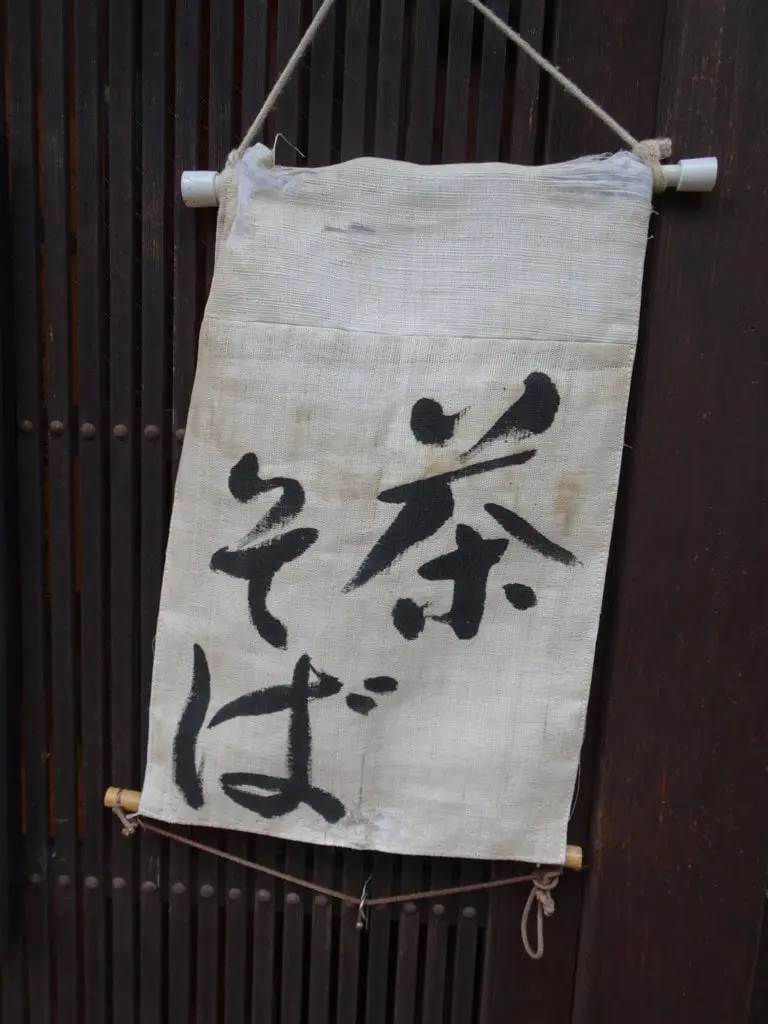 茶
そば